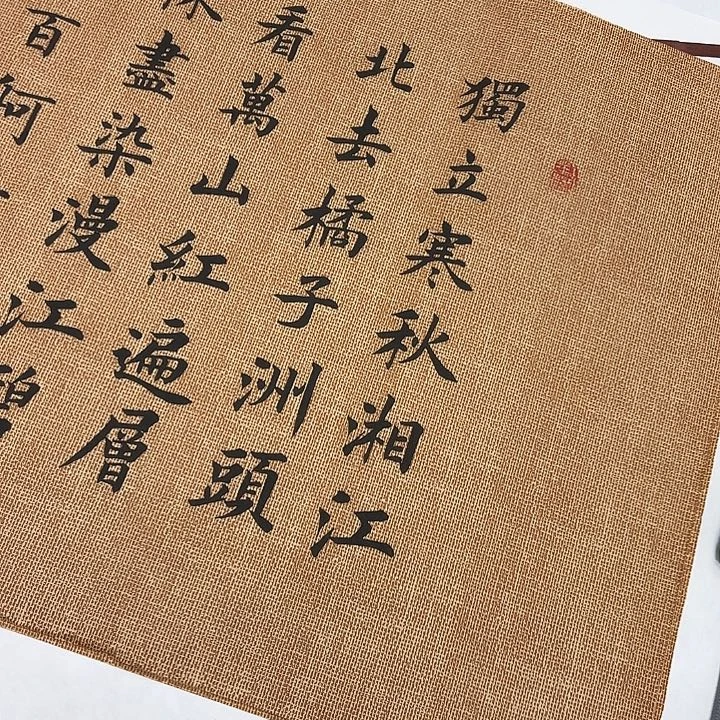 獨立寒秋湘江
北去橘子洲頭
看萬山紅遍層
林盡染漫江碧
百舸